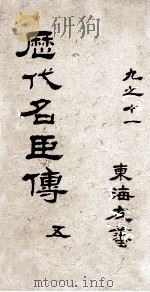 九之十一
歷代名臣傳 五
東海方
mtoou.info